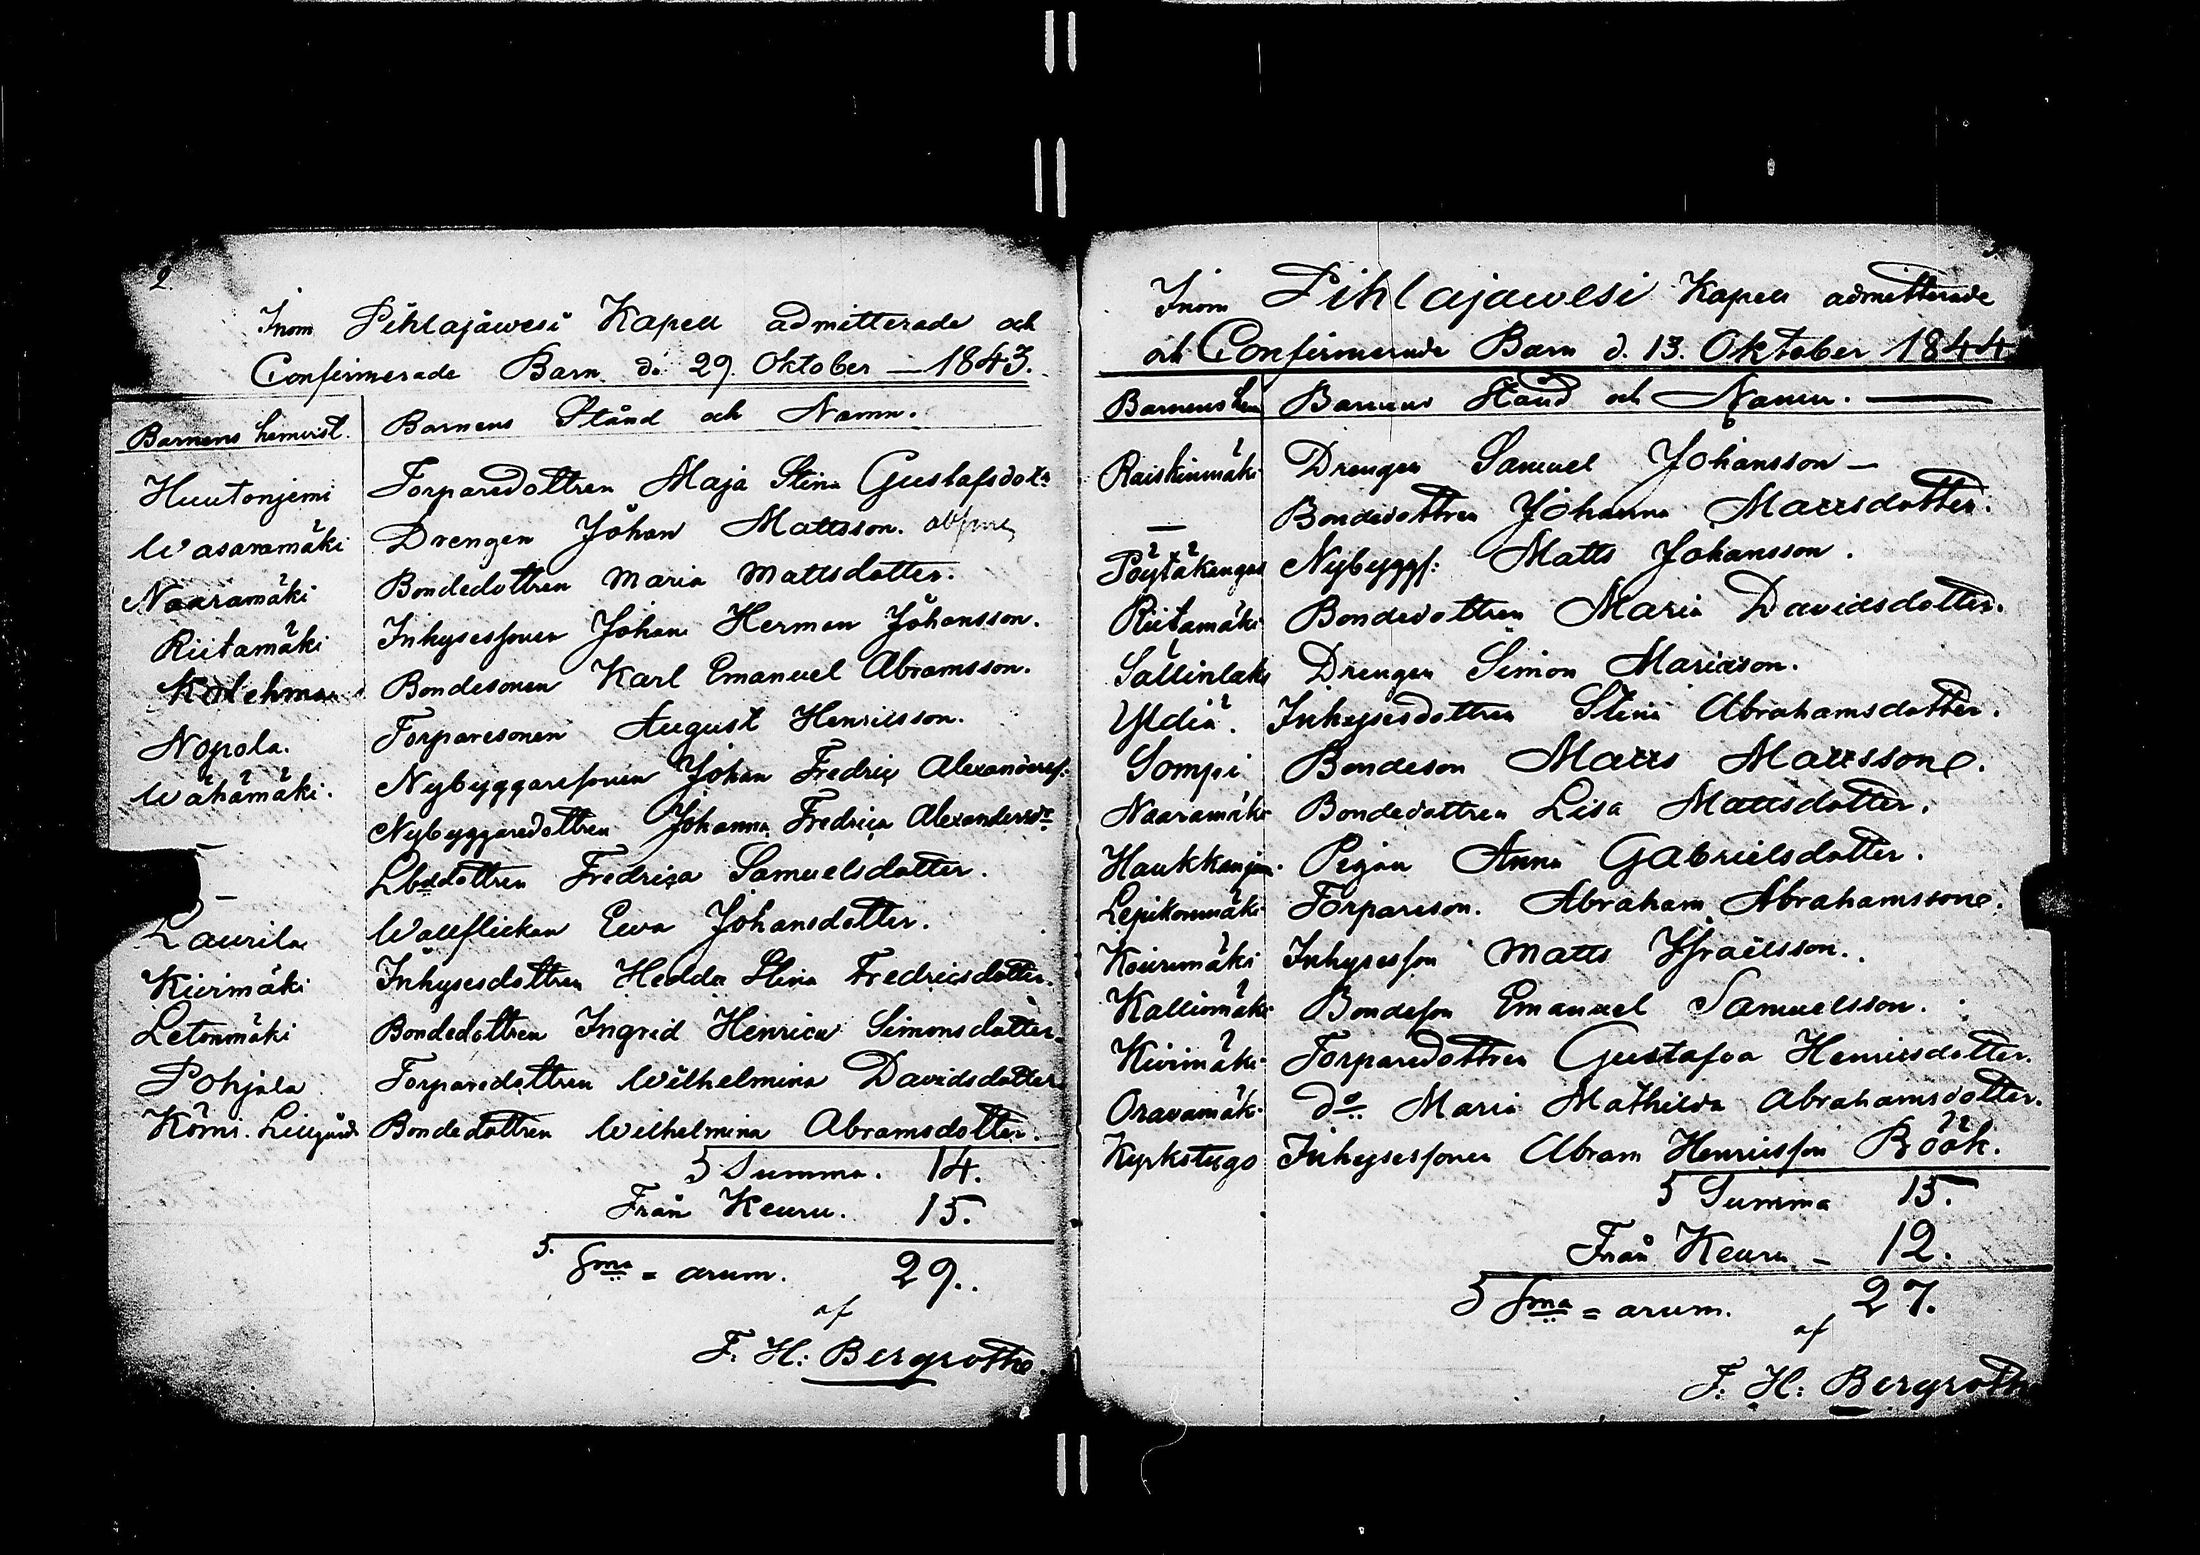 2.
Inom Pihlajawesi Kapell admitterade och
Confirmerade Barn d. 29. Oktober — 1843.
Barnens hemvist. Barnens Stånd och Namn.
Huutonjemi Torparedottren Maja Stina Gustafsdotr
Wasaramäki Drengen Johan Mattsson.
Naaramäki Bondedottren Maria Mattsdotter.
Riitamäki Inhysessonen Johan Herman Johansson.
Kolehma Bondesonen Karl Emanuel Abramsson.
Nopola. Torparesonen August Henricsson.
Wähämäki. Nybyggaresonen Johan Fredric Alexanders:
— Nybyggaredottren Johanna Fredrica Alexandersdr
— Lbdedottren Fredrica Samuelsdotter.
Laurila Wallflickan Ewa Johansdotter.
Kiirimäki Inhysesdottren Hedda Stina Fredricsdotter.
Letonmäki Bondedottren Ingrid Henrica Simonsdotter.
Pohjola Torparedottren Wilhelmina Davidsdotter
Kömi. Lillgård Bondedottren Wilhelmina Abramsdotter.
Summa. 14.
Från Keuru. 15.
Sma = arum. 29.
af
F. H: Bergroth
Inom Pihlajawesi Kapell admitterade
och Confirmerade Barn d. 13. Oktober 1844
Barnens hem Barnens Stånd och Namn. —
Raiskinmäki Drengen Samuel Johansson —
— Bondedottren Johanna Mattsdotter.
Pöytäkangas Nybyggs: Matts Johansson.
Riitamäki Bondedottren Maria Davidsdotter.
Sällinlaks Drengen Simon Mariæson.
Yldiä. Inhysesdottren Stina Abrahamsdotter.
Sompi Bondeson Matts Mattsson.
Naaramäki Bondedottren Lisa Mattsdotter.
Haukkanjem. Pigan Anna Gabrielsdotter.
Lepikonmäki Torpareson. Abraham Abrahamsson.
Koiurimäki Inhysesson Matts Israelsson.
Kalliomäki Bondeson Emanuel Samuelsson.
Kiirimäki Torparedottren Gustafva Henricsdotter.
Oravamäki do Maria Mathilda Abrahamsdotter.
Kyrkstugo Inhysessonen Abram Henricsson Böök.
Summa 15.
Från Keuru — 12.
Sma = arum. 27.
af
F. H: Bergroth